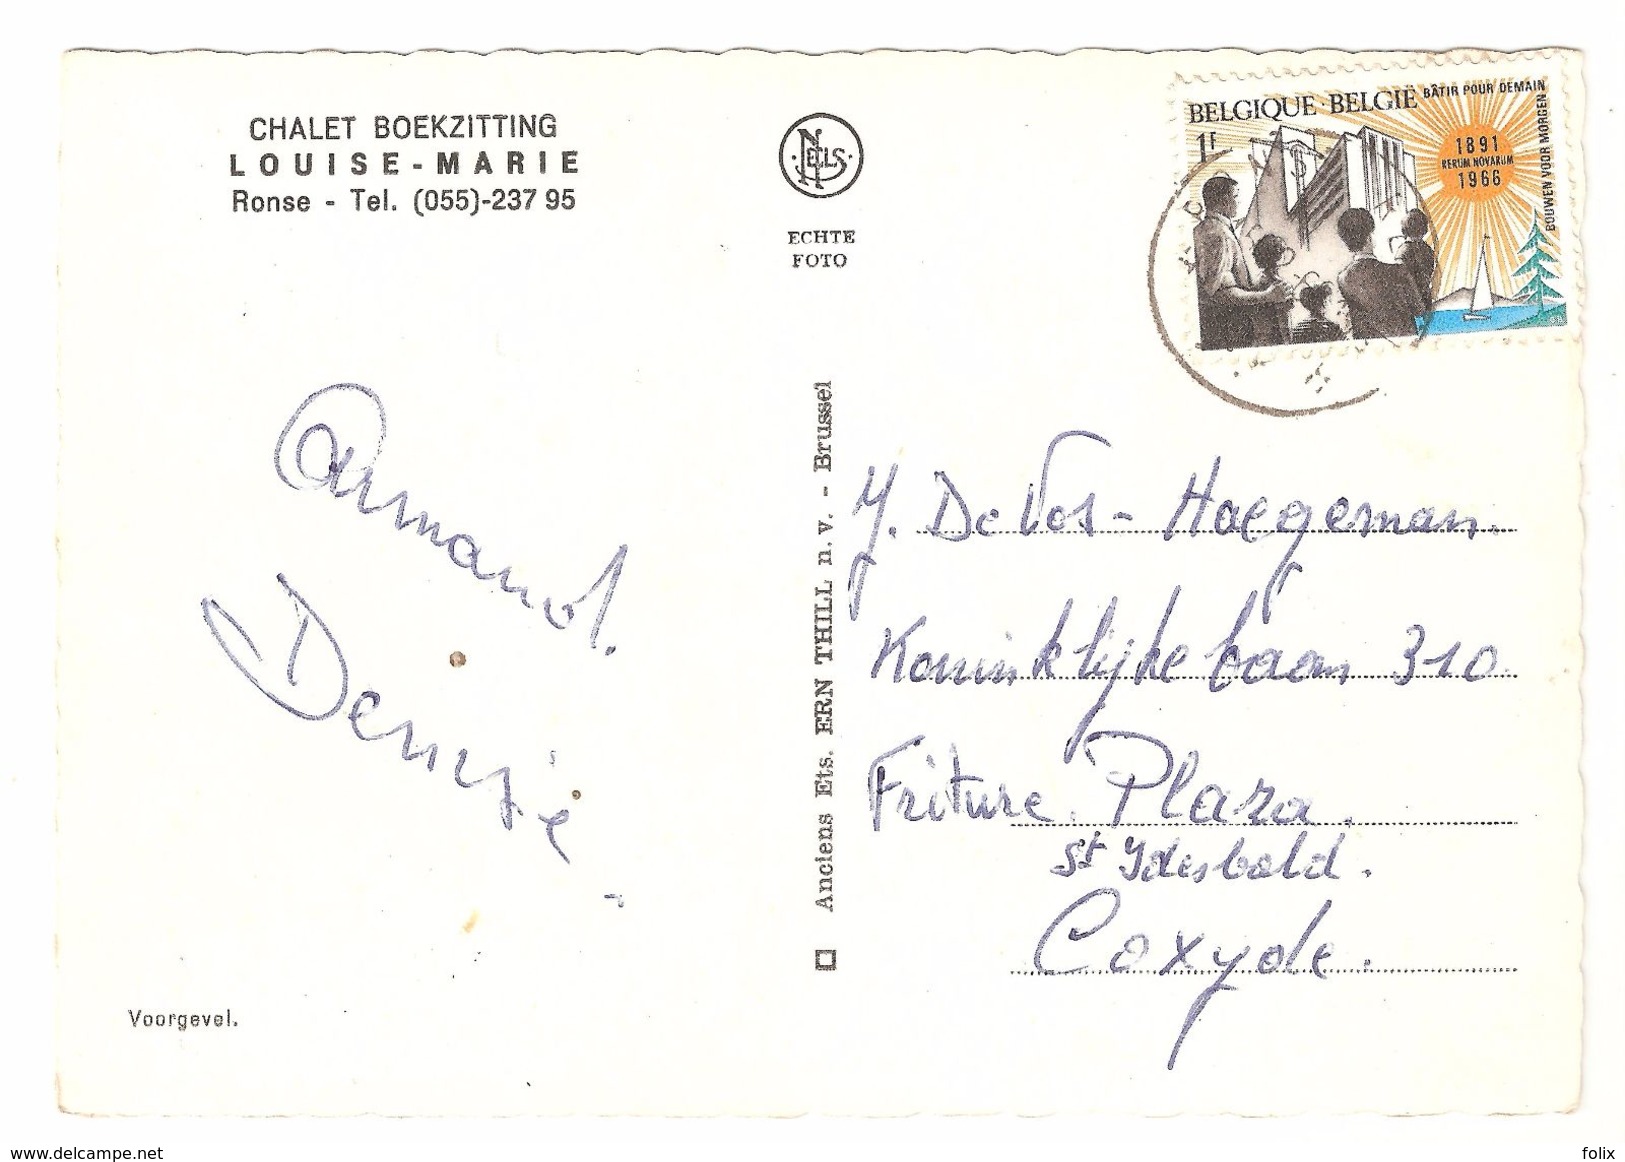 CHALET BOEKZITTING
LOUISE-MARIE
Ronse - Tel. (055)-237 95
NELS
ECHTE
FOTO
BELGIQUE·BELGIË
BÂTIR POUR DEMAIN
BOUWEN VOOR MORGEN
1F
1891
RERUM NOVARUM
1966
Armand.
Denise.
Voorgevel.
Anciens Ets. ERN THILL n. v. - Brussel
Y. De Vos - Haegeman.
Koninklijkebaan 310
Friture Plaza.
St Idesbald.
Coxyde.
www.delcampe.net
folix